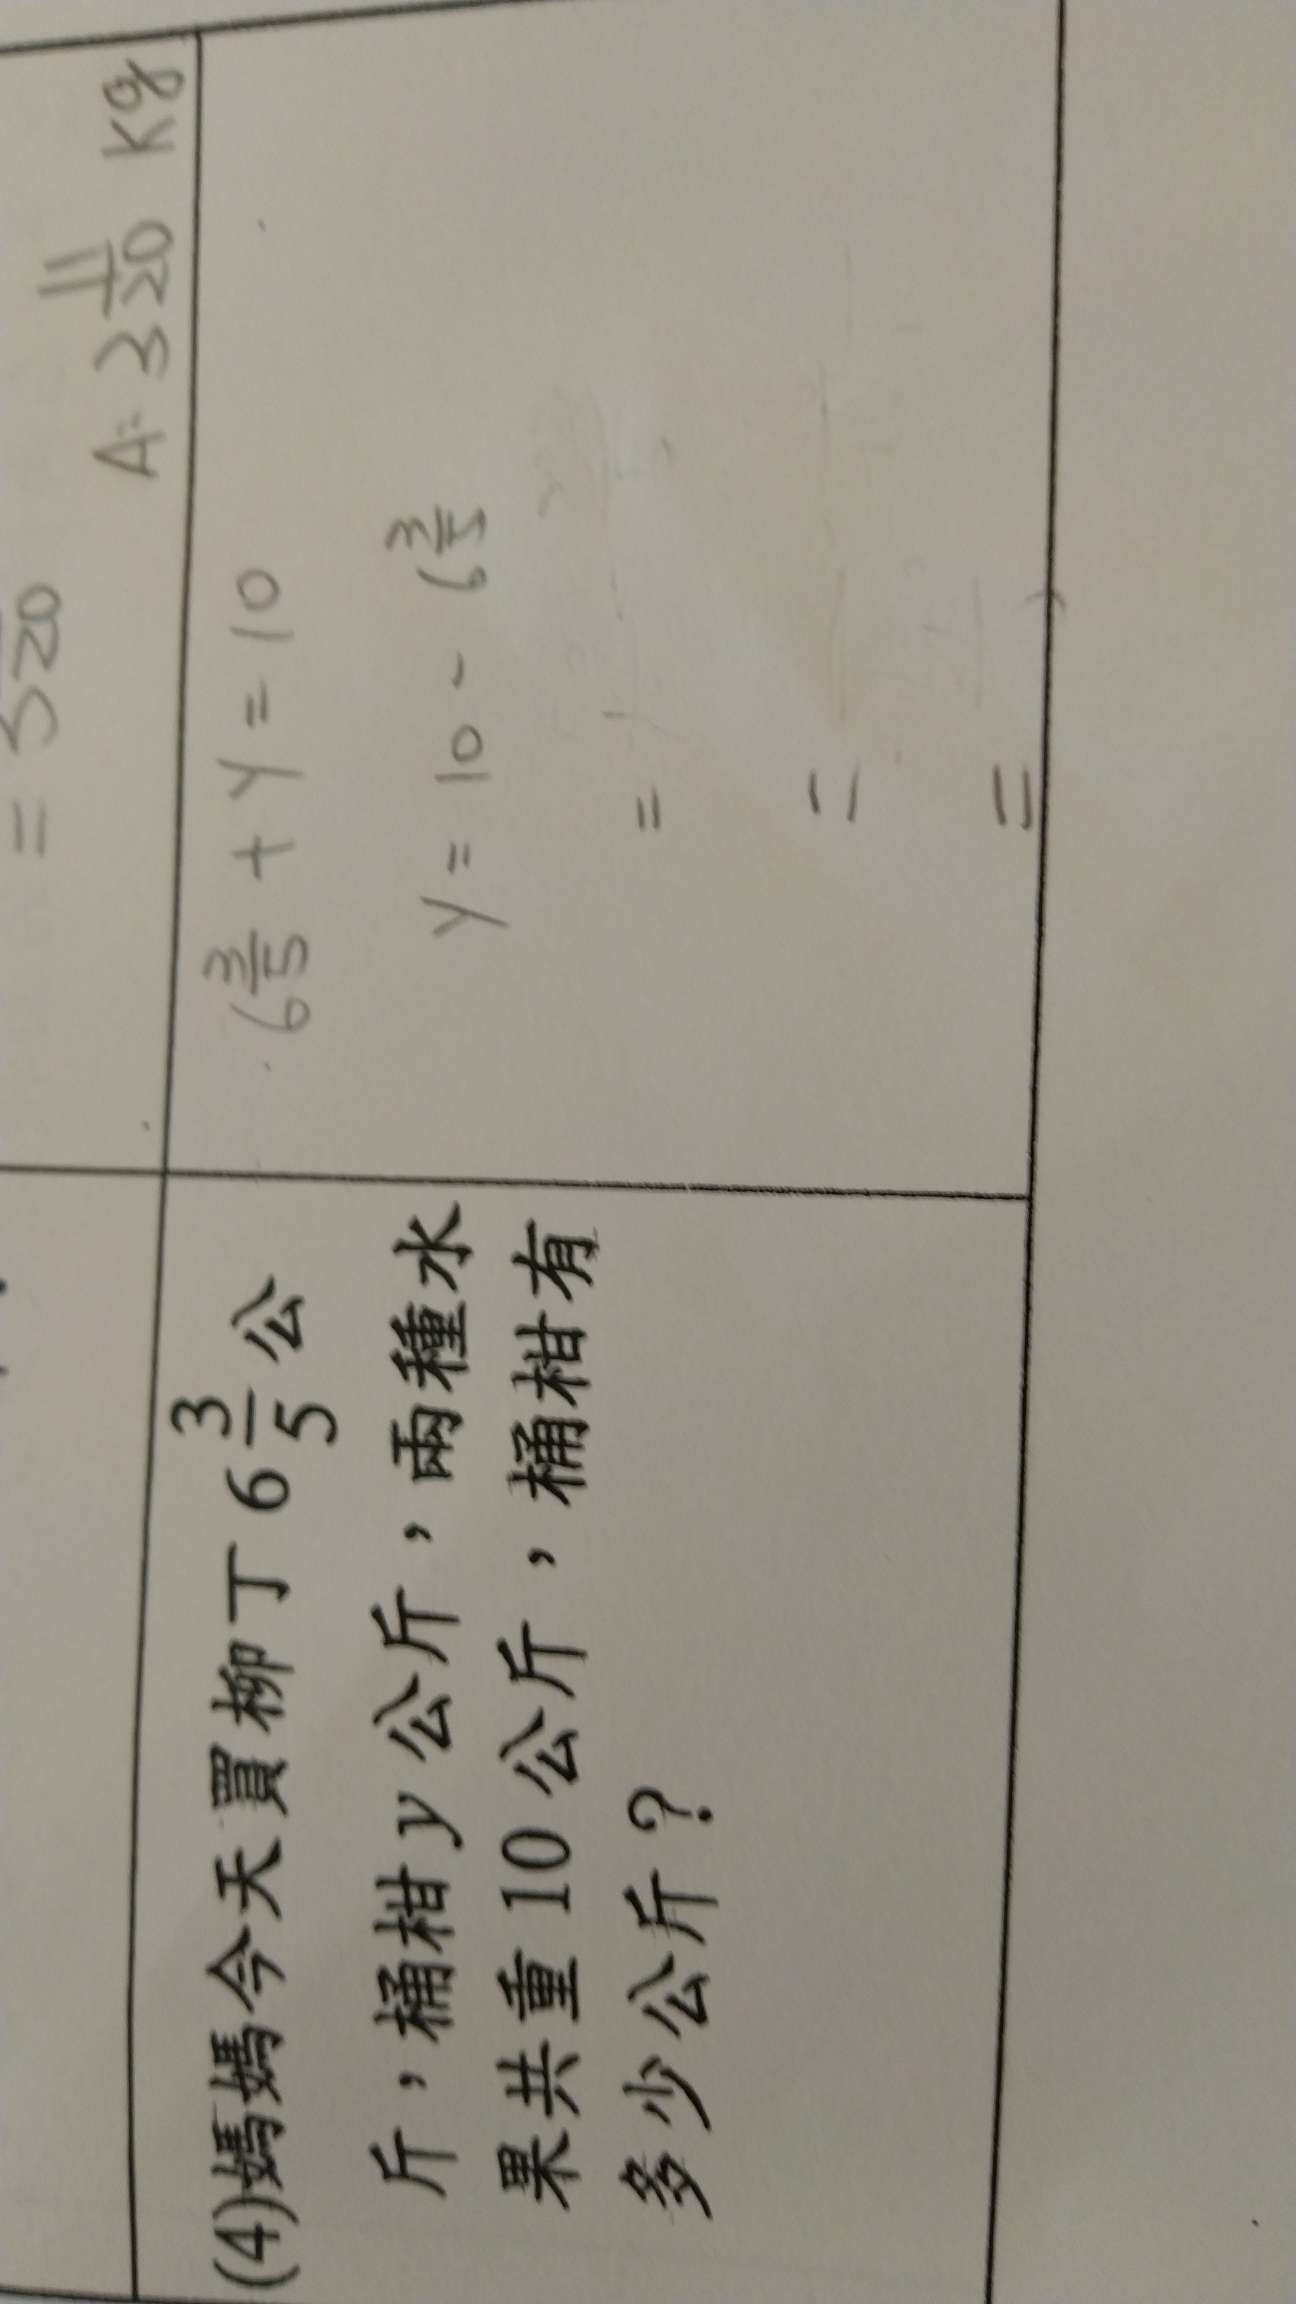 = 3 /20
A: 3 11/20 Kg
(4)媽媽今天買柳丁 6 3/5 公
斤，桶柑 y 公斤，兩種水
果共重 10 公斤，桶柑有
多少公斤？
6 3/5 + y = 10
y = 10 - 6 3/5
=
=
=